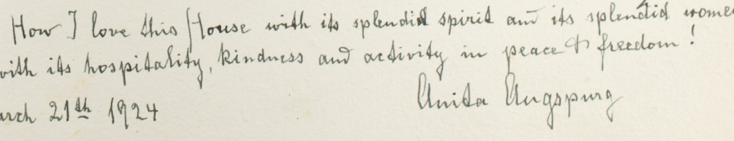 How I love this House with its splendid spirit and its splendid women
with its hospitality, kindness and activity in peace & freedom!
March 21th 1924
Anita Augspurg